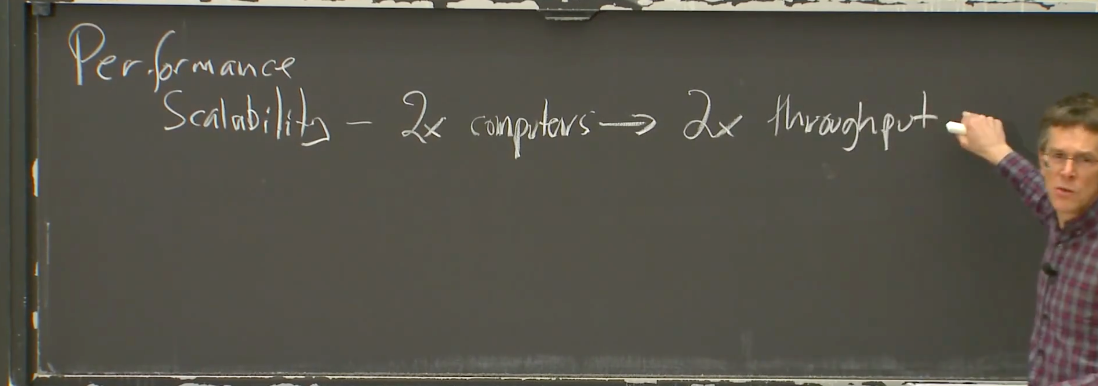 Performance
Scalability - 2x computers → 2x throughput